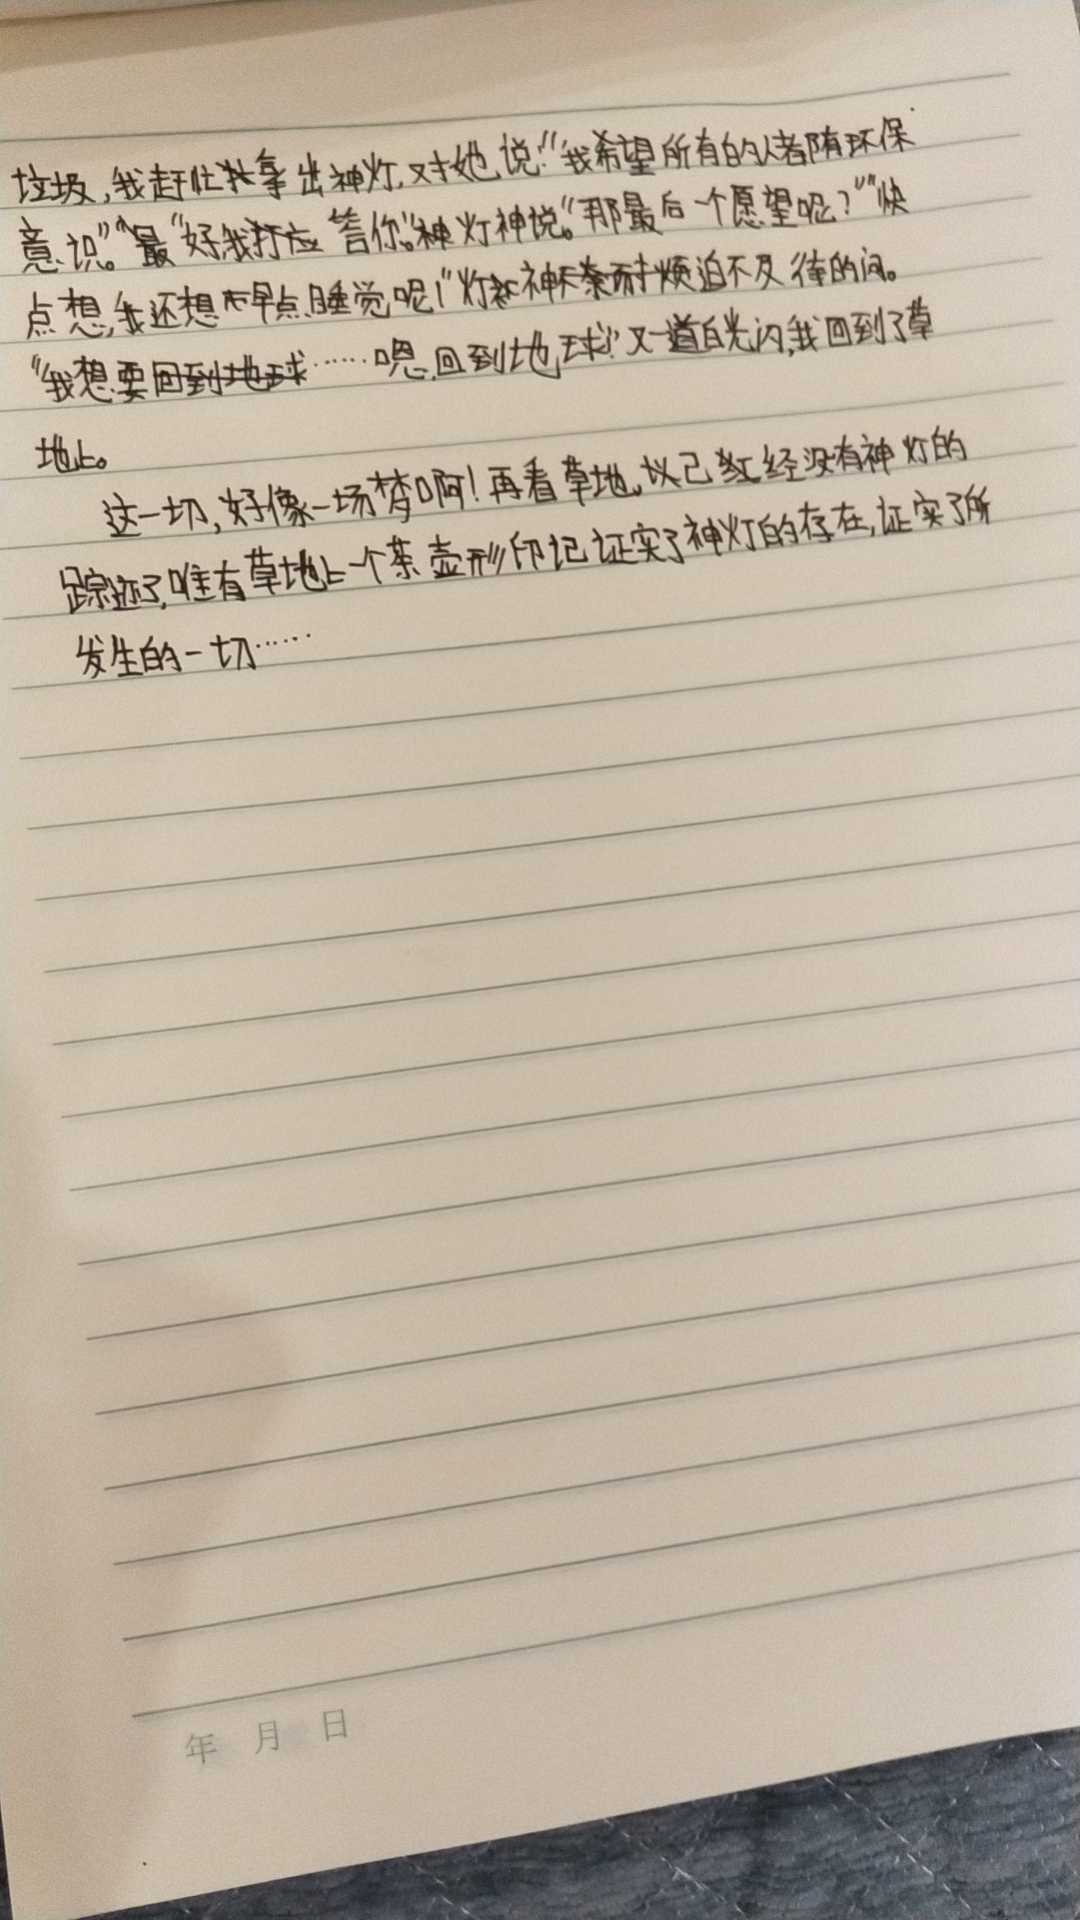 垃圾,我赶忙拿出神灯,对她说:“我希望所有的人都有环保
意识。”“好,我打应答你。”神灯神说。“那最后一个愿望呢?”“快
点想,我还想早点睡觉呢!”灯神不奈耐烦迫不及待的问。
“我想要回到地球……嗯,回到地球!”又一道白光闪,我回到了草
地上。
这一切,好像一场梦啊!再看草地,以已经没有神灯的
踪迹了,唯有草地上一个茶壶形印记证实了神灯的存在,证实了所
发生的一切……
年 月 日